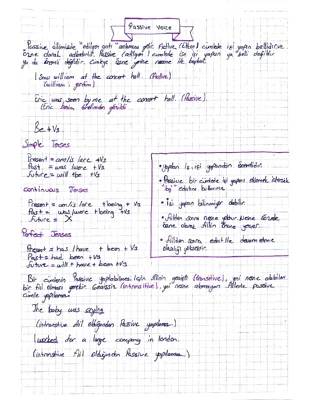 Passive Voice
Passive dilimizde "edilgen çatı" anlamına gelir. Active (etken) cümlede işi yapan bellidir ve
özne olarak adlandırılır. Passive (edilgen) cümlede ise işi yapan ya belli değildir
ya da önemli değildir. Cümleye özne yerine nesne ile başlanır.
I saw william at the concert hall. (Active)
(william'ı gördüm)
Eric was seen by me at the concert hall. (Passive)
(Eric benim tarafımdan görüldü)
Be + V3
Simple Tenses
Present = am/is/are + V3
Past = was/were + V3
Future = will + be + V3
continuous Tenses
Present = am/is/are + being + V3
Past = was/were + being + V3
Future = X
Perfect Tenses
Present = has/have + been + V3
Past = had been + V3
Future = will + have + been + V3
• Yapılan iş, işi yapandan önemlidir.
• Passive bir cümlede işi yapanı eklemek istersek
"by" edatını kullanırız.
• İşi yapan bilinmiyor olabilir.
• Fiilden sonra nesne yoktur
• Fiilden sonra edat ile devam etme
Bir cümlenin Passive yapılabilmesi için fiilin geçişli (transitive), yani nesne alabilen
bir fiil olması gerekir. Geçişsiz (intransitive), yani nesne almayan fiillerle passive
cümle yapılamaz.
The baby was crying
(intransitive fiil olduğundan Passive yapılamaz.)
I worked for a large company in london.
(intransitive fiil olduğundan Passive yapılamaz.)